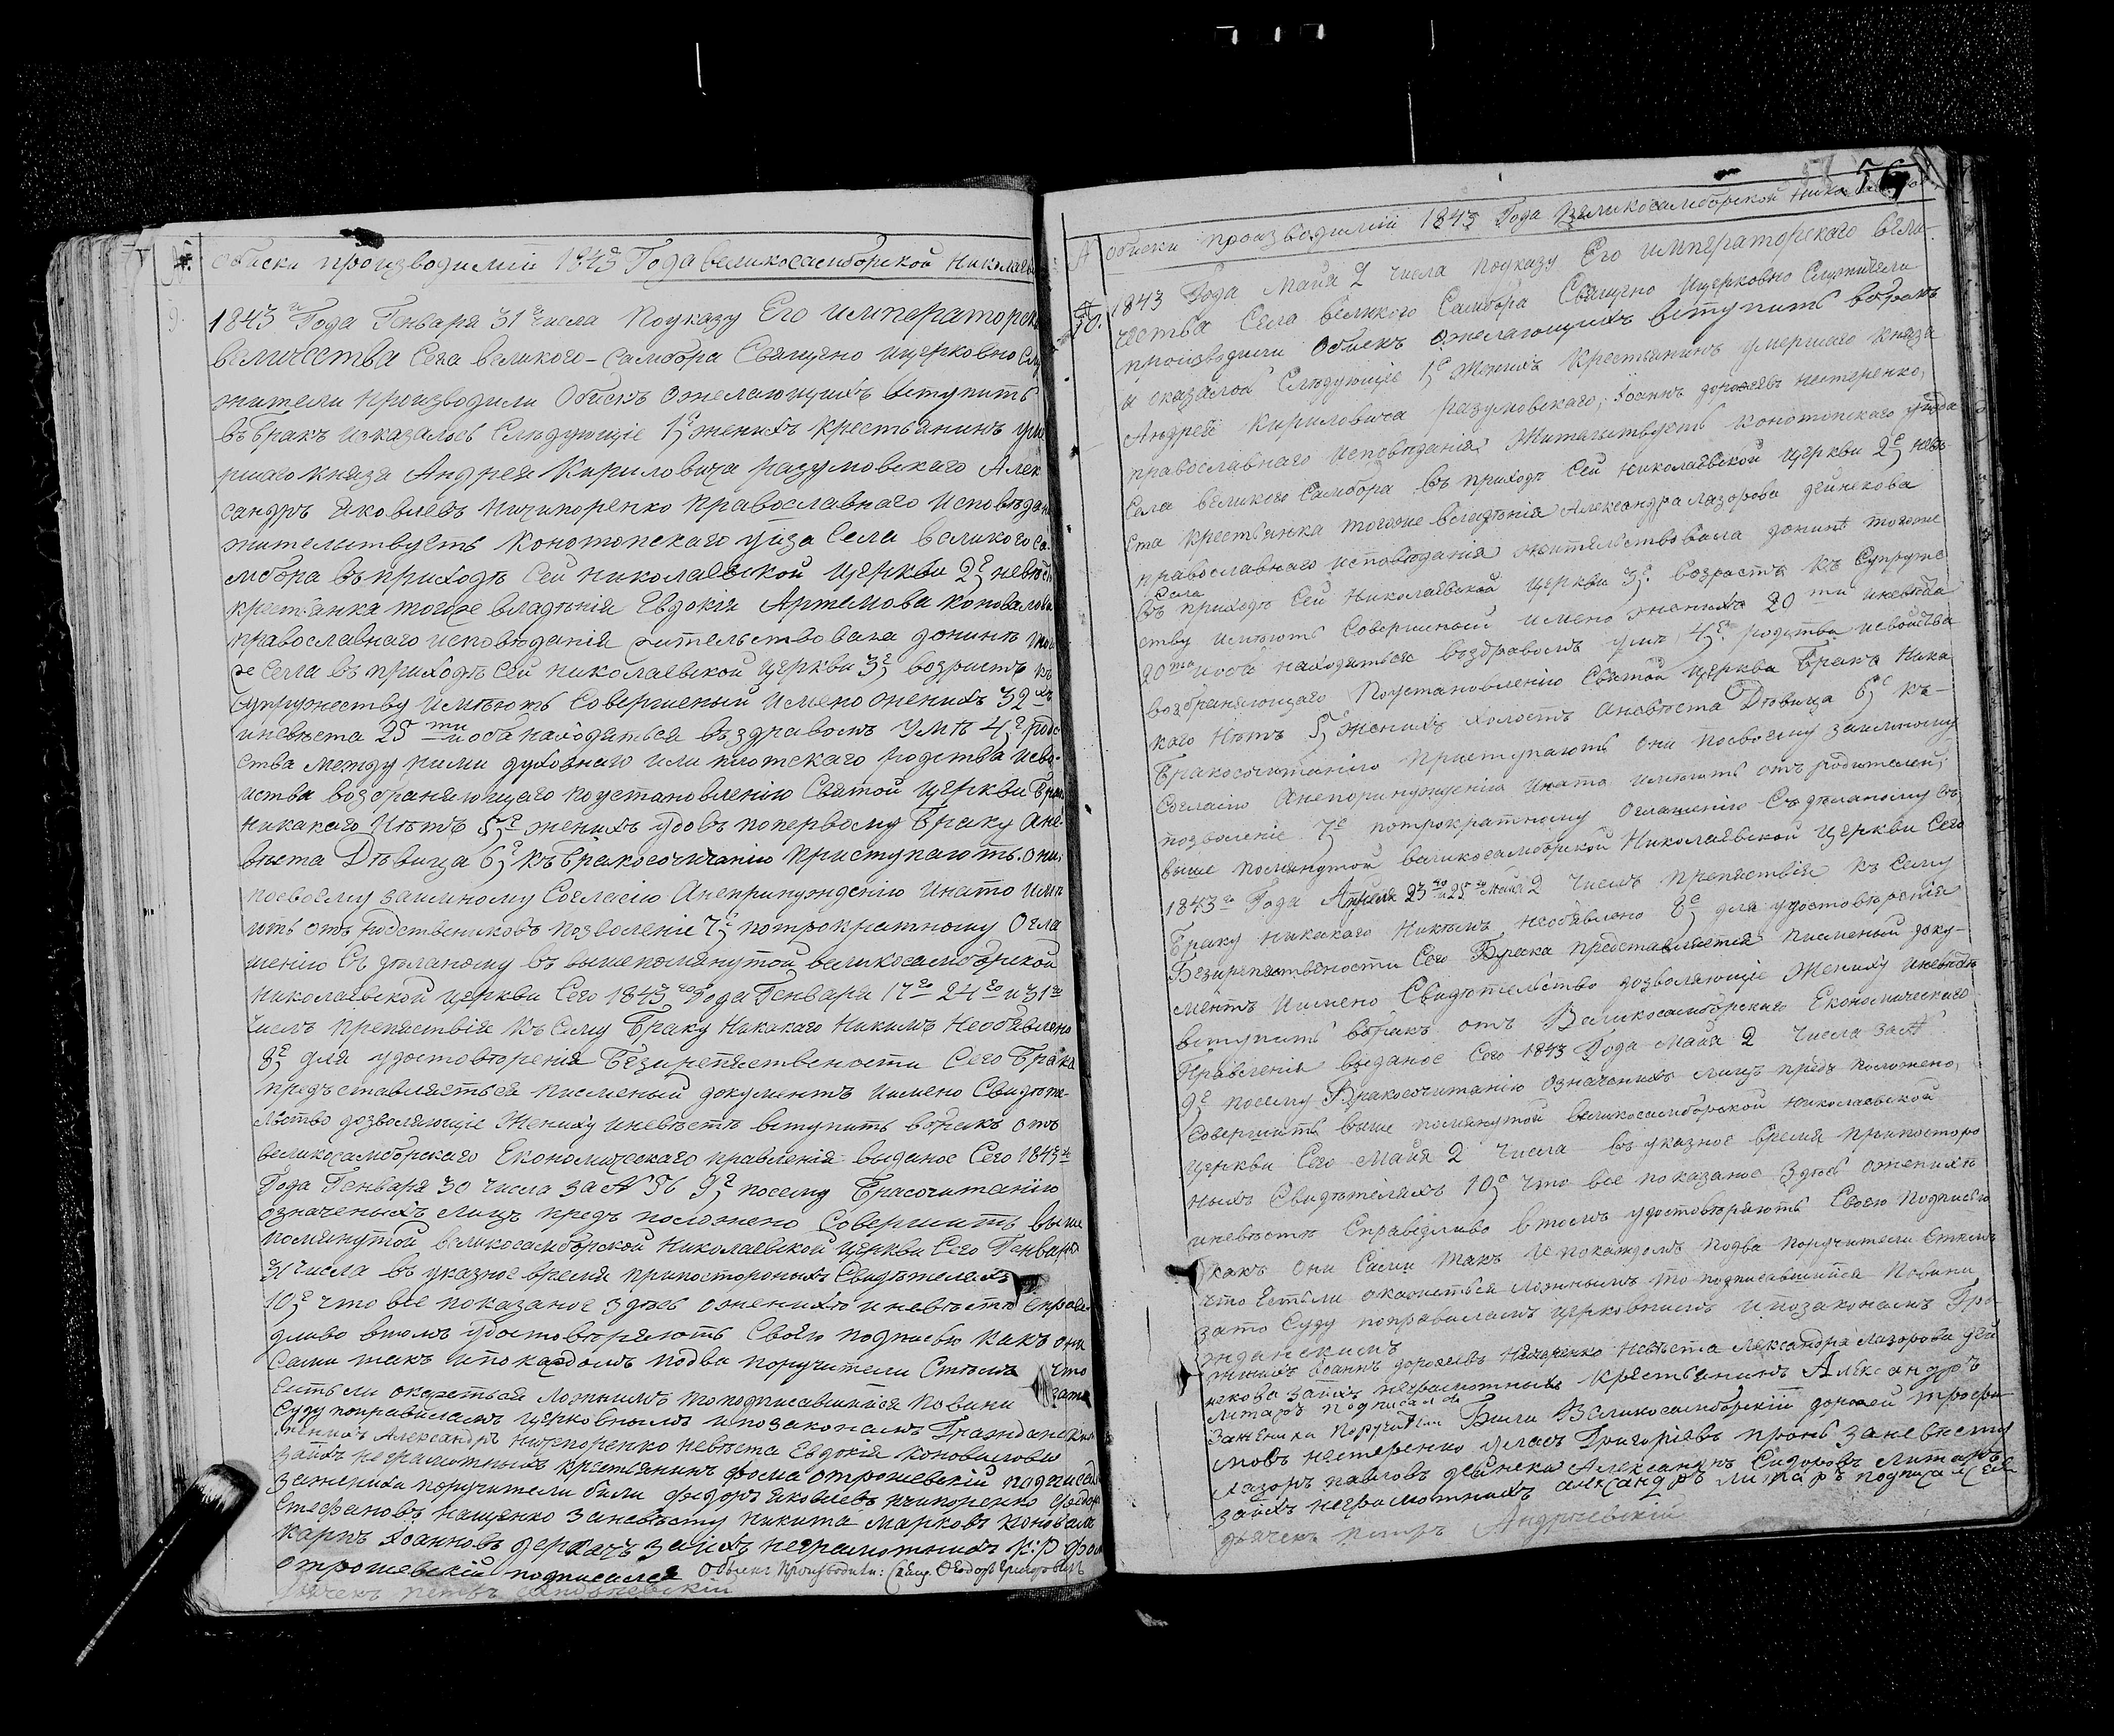 № Обиски производимїи 1843 Года великосамборской Николаев
9. 1843 Года Генваря 31 числа По указу Его императорск
величества Села великого-Самбора Священо ицерковно слу
жители производили Обискъ ожелающихъ вступить
въ бракъ иоказалось Слѣдующіе 1е женихъ крестьянинъ уме
ршаго князя Андрея Кириловича разумовскаго Алек
сандръ Яковлевъ Ничипоренко православнаго исповѣдан
жительствуетъ конотопскаго уѣзда Села великого Са-
мбора въ приходѣ Сей николаевской церкви 2е невѣст
крестьянка тогоже владѣнія Евдокія Артемова коновалова
православнаго исповѣданія жительствовала донинѣ того
же Села въ приходѣ Сей николаевской церкви 3е возрастъ къ
супружеству имѣютъ Совершеный имено женихъ 32
иневѣста 25 ти иоба находяться въ здравомъ умѣ 4е родс
ства между ними духовнаго или плотскаго родства исво-
йства возбраняющаго по установленію Святой церкви Брак
никакаго Нѣтъ 5е женихъ удовъ по первому браку Ане-
вѣста Дѣвица 6е къ Бракосочитанію приступаютъ они
посвоему заимному Согласію Анепринужденію инато имѣ
ютъ отъ родствениковъ позволеніе 7е потрократному Огла
шенію Съдѣланому въ вышепомянутой великосамборской
Николаевской церкви Сего 1843 го Года Генваря 17го 24го и 31го
числъ препятствія къ Сему Браку Никакаго Никимъ Необявлено
8е для удостовѣренія Безпрепятственности Сего Брака
предъставляеться писменый документъ имено Свидѣте-
льство дозволяющіе Жениху иневѣстѣ вступить вбракъ отъ
великосамборскаго Економическаго правленія выданое Сего 1843 го
Года Генваря 30 числа за № 56 9е посему Брасочитанїю
означеныхъ лицъ предъ положено Совершить выше
помянутой великосамборской Николаевской церкви Сего Генваря
31 числа въ указное время припостороныхъ Свидѣтеляхъ
10е что все показаное здѣсь ожених иневѣстѣ Справе
дливо втомъ удостовѣряютъ Своею подписью какъ они
Сами такъ ипокаждомъ подва поручители Стѣмъ что
Естьли окажеться ложнимъ то подписавшіися повини зато
Суду поправиламъ церковнымъ ипозаконамъ Гражданским
женихъ Александръ Ничипоренко невѣста Евдокія коновалова
заихъ неграмотныхъ крестьянинъ фома отрошевскїй подписал
зажениха поручители били федоръ Яковлевъ ничипоренко федоръ
Стефановъ нащенко Заневѣсту никита марковъ коновалъ
карпъ Іоанновъ деркачъ за ихъ неграмотныхъ к:р фом
отрошевскїй подписался Обыскъ Производили: Свящ. Феодоръ Григоровичъ
дьячекъ петръ Андріевскїй
56
№ Обиски производимїи 1843 Года великосамборской Николаевской
10. 1843 Года Майя 2 числа поуказу Его императорскаго вели-
чества Села великого Самбора Священо ицерковно Служители
производили Обискъ ожелающихъ вступить вбракъ
и оказалос Слѣдующіе 1е женихъ крестьянинъ умершаго князя
Андрея Кириловича разумовскаго, Іоаннъ дорофѣевъ нестеренко,
православнаго исповѣданія Жительствуетъ конотопскаго уѣзда
Села великого Самбора въ приходѣ Сей николаевской церкви 2е невѣ
ста крестьянка тогоже владѣнія Александра лазорова дейнекова
православнаго исповѣданія жительствовала донинѣ тогоже
Села
въ приходѣ Сей Николаевской церкви 3е возрастъ къ Супруже
ству имѣютъ Совершеный имено женихъ 20 ти иневѣста
20 ти иоба находяться въздравомъ умѣ, 4е родства исвойства
возбраняющаго По установленію Святой церкви Брака Ника
каго Нѣтъ 5е женихъ холостъ Аневѣста Дѣвица 6е къ-
Бракосочитанію приступаютъ они посвоему заимному
Согласію Анепоринужденія инато имѣютъ отъ родителей,
позволеніе 7е потрократному Оглашенію Съдѣланому въ
выше помянутой великосамборской Николаевской церкви Сего
1843 го Года Апреля 23 го и 25 го Майя 2 числъ препятствія къ Сему
Браку никакаго Никѣмъ необявлено 8е для удостовѣренія
Безпрепятствености Сего Брака представляется писменый доку-
ментъ Имено Свидѣтельство дозволяющіе жениху иневѣстѣ
вступить вбракъ отъ Великосамборскаго Економическаго
Правленія выданое Сего 1843 Года Майя 2 числа за №
9е посему Бракосочитанію означеныхъ лицъ предъ положено,
Совершить выше помянутой великосамборской николаевской
церкви Сего Майя 2 числа въ указное время припосторо
ныхъ Свидѣтеляхъ 10е что все показаное Здѣсь оженихѣ
иневѣстѣ Справедливо втомъ удостовѣряютъ Своею подписью
какъ они Сами такъ ипокаждомъ подва поручители Стѣмъ
что Естьли окажеться ложнымъ то подписавшіися Повини
зато Суду поправиламъ церковнымъ ипозаконамъ Гра-
жданскимъ
жених Іоаннъ дорофеевъ Нестеренко Невѣста Александра лазорова дей
некова заихъ неграмотныхъ крестьянинъ Александръ
литаръ подписался
Зажениха Поручители Били Великосамборскїй дорофей трофи
мовъ нестеренко Григорїевъ заневѣсту
лазоръ павловъ дейнека Александръ Сидоровъ литаръ
заихъ неграмотныхъ александръ литаръ подписался
дьячекъ петръ Андріевскїй